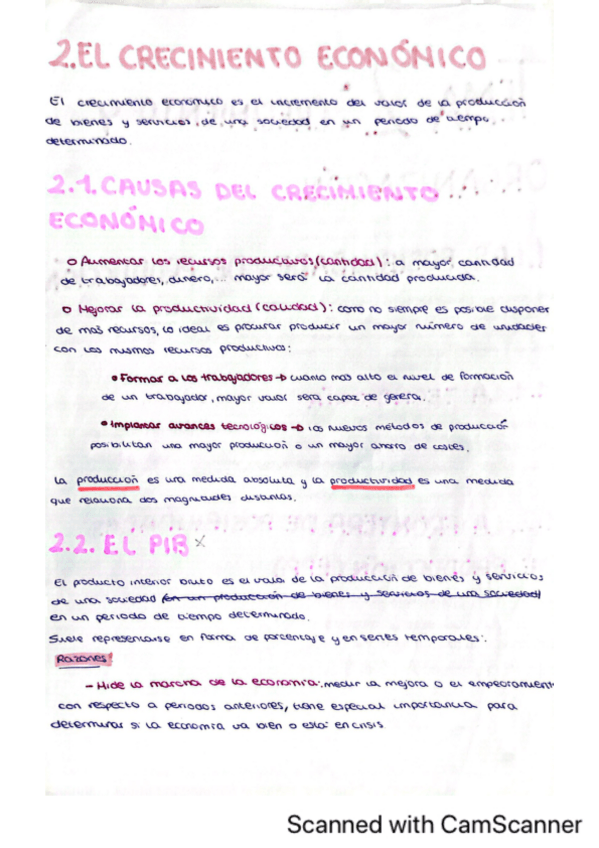 2. EL CRECIMIENTO ECONÓMICO
El crecimiento económico es el incremento del valor de la producción
de bienes y servicios de una sociedad en un periodo de tiempo
determinado.
2.1. CAUSAS DEL CRECIMIENTO
ECONÓMICO
o Aumentar los recursos productivos (cantidad): a mayor cantidad
de trabajadores, dinero,... mayor será la cantidad producida.
o Mejorar la productividad (calidad): como no siempre es posible disponer
de más recursos, lo ideal es procurar producir un mayor número de unidades
con los mismos recursos productivos:
• Formar a los trabajadores → cuanto más alto el nivel de formación
de un trabajador, mayor valor será capaz de generar.
• Implantar avances tecnológicos → los nuevos métodos de producción
posibilitan una mayor producción o un mayor ahorro de costes.
La producción es una medida absoluta y la productividad es una medida
que relaciona dos magnitudes distintas.
2.2. EL PIB
El producto interior bruto es el valor de la producción de bienes y servicios
de una sociedad (en un producción de bienes y servicios de una sociedad)
en un periodo de tiempo determinado.
Suele representarse en forma de porcentaje y en series temporales:
Razones:
- Mide la marcha de la economía: medir la mejora o el empeoramiento
con respecto a periodos anteriores, tiene especial importancia para
determinar si la economía va bien o está en crisis.
Scanned with CamScanner